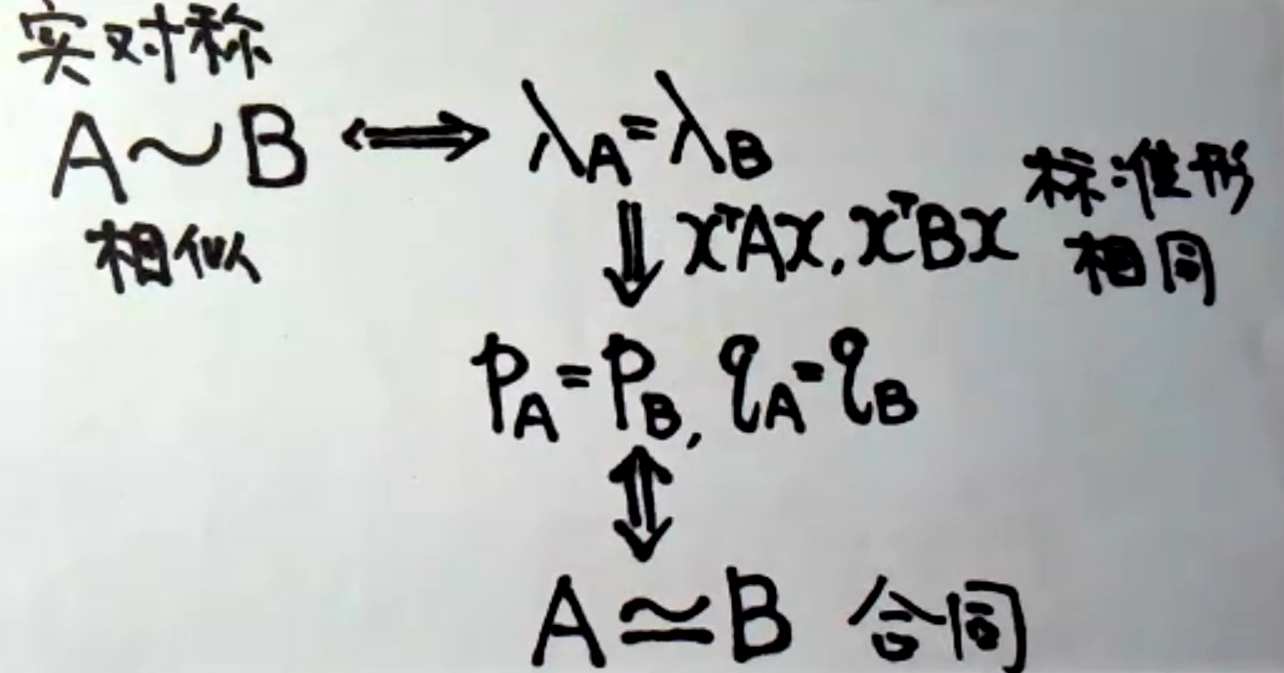 实对称
A∼B ⟺ λA=λB
相似
⇓ xᵀAx, xᵀBx 标准形
相同
pA=pB, qA=qB
⇕
A≃B 合同